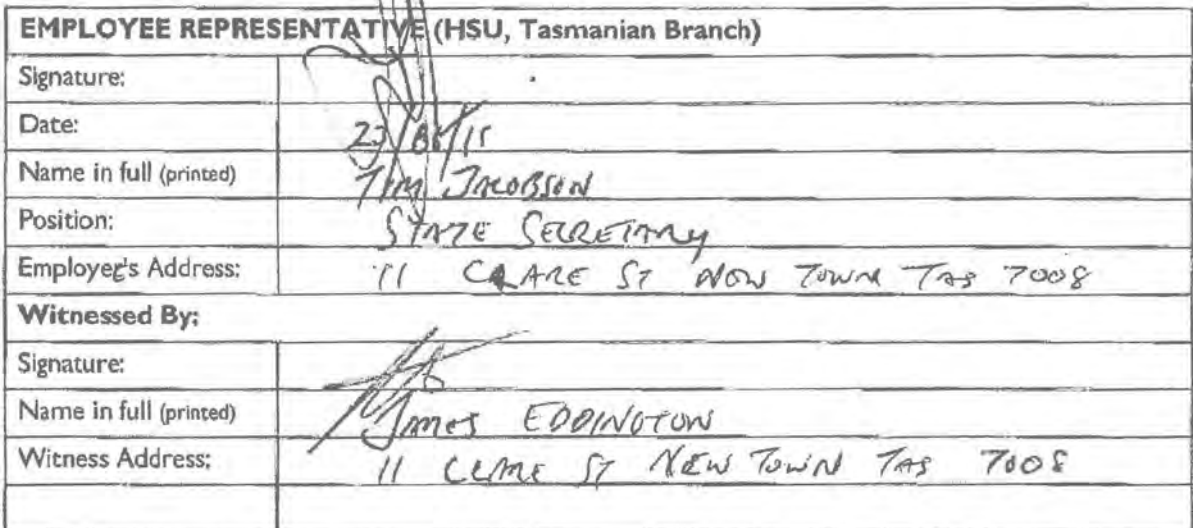 EMPLOYEE REPRESENTATIVE (HSU, Tasmanian Branch)
Signature:
Date: 23/06/15
Name in full (printed) TIM JACOBSON
Position: STATE SECRETARY
Employee's Address: 11 CLARE ST NEW TOWN TAS 7008
Witnessed By:
Signature:
Name in full (printed) JAMES EDDINGTON
Witness Address: 11 CLARE ST NEW TOWN TAS 7008